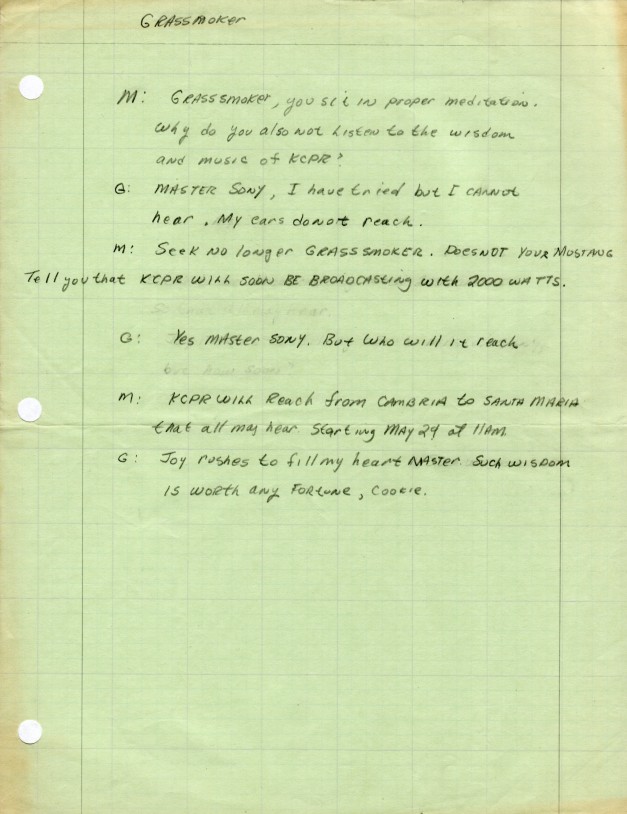 GRASSMOKER
M: GRASSSMOKER, you sit in proper meditation.
Why do you also not Listen to the wisdom
and music of KCPR?
G: MASTER SONY, I have tried but I CANNOT
hear. My ears do not reach.
M: Seek No longer GRASSSMOKER. DOES NOT YOUR MUSTANG
Tell you that KCPR WILL SOON BE BROADCASTING with 2000 WATTS.
G: Yes MASter SONY. But Who will it reach
M: KCPR WILL Reach from CAMBRIA to SANTA MARIA
that all may hear Starting MAY 29 at 11AM
G: Joy rushes to fill my heart MASTER. Such WISDOM
IS WORTH ANY FORTUNE, COOKIE.